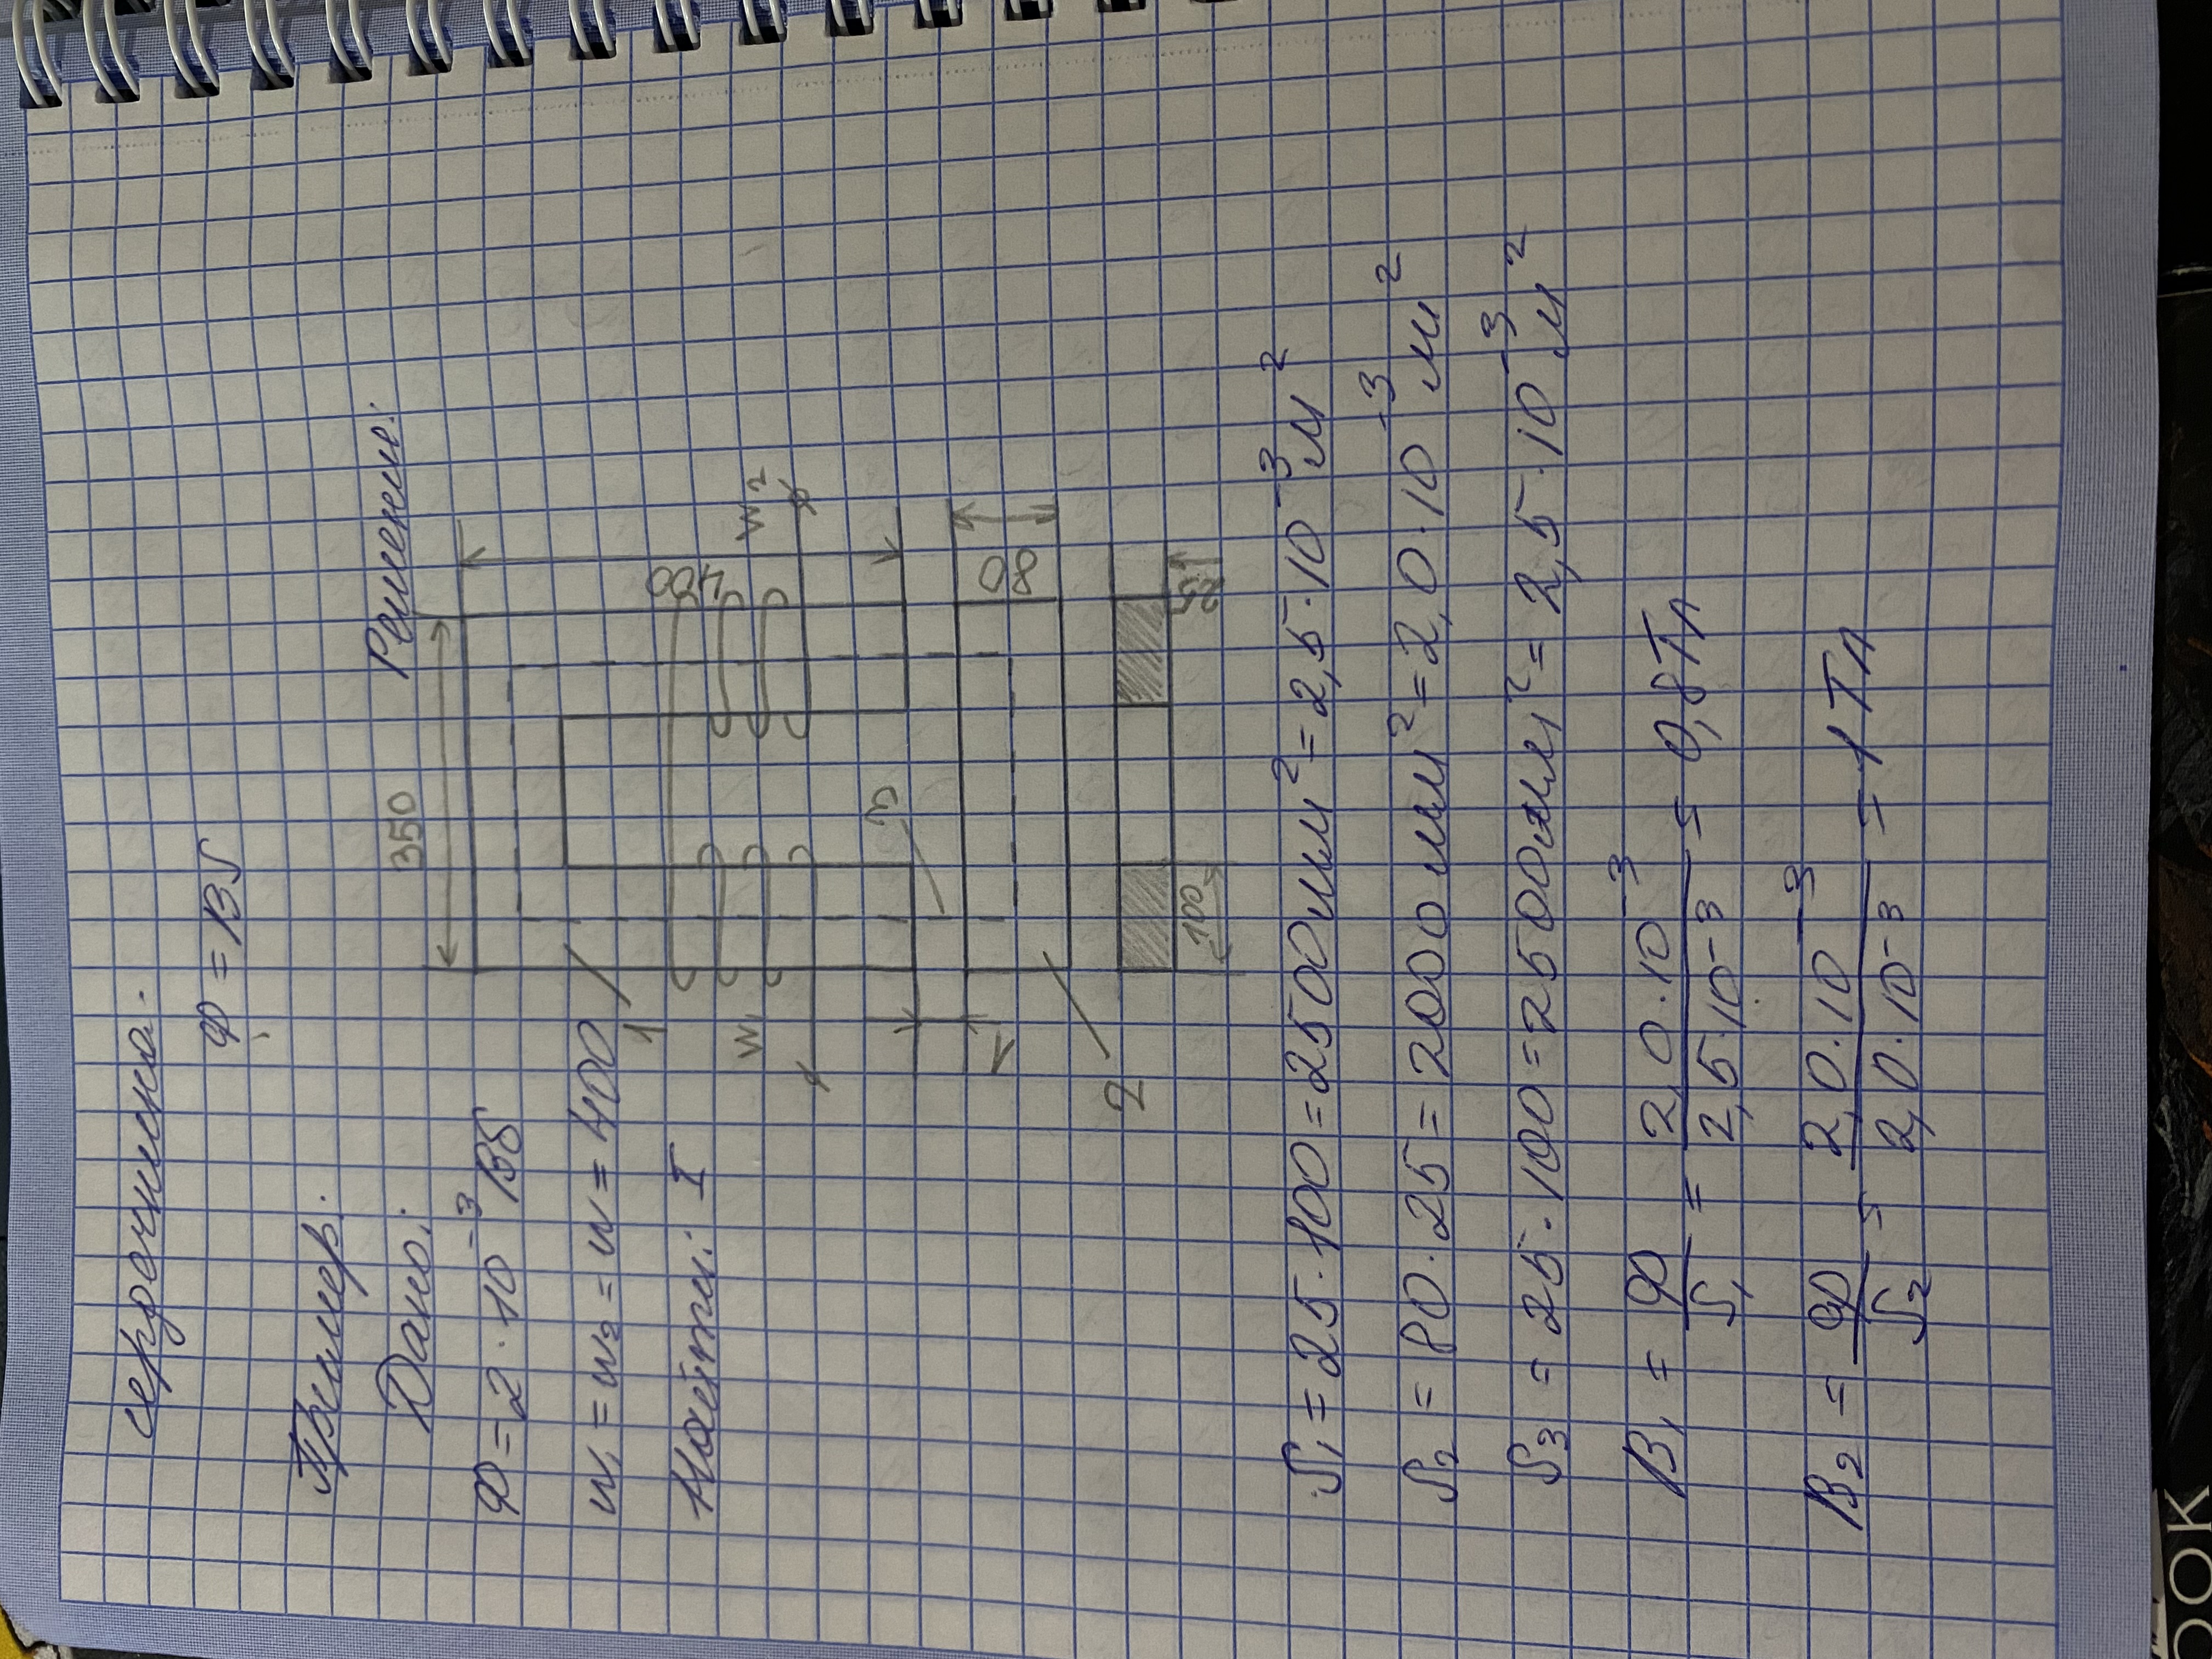 сердечника.
Ф = BS
Пример.
Дано:
Решение:
Ф = 2 · 10⁻³ Вб
w₁ = w₂ = w = 400
Найти: I
350
400
80
25
100
1
2
3
W₁
W₂
1
S₁ = 25 · 100 = 2500 мм² = 2,5 · 10⁻³ м²
S₂ = 80 · 25 = 2000 мм² = 2,0 · 10⁻³ м²
S₃ = 25 · 100 = 2500 мм² = 2,5 · 10⁻³ м²
B₁ = Ф/S₁ = 2,0 · 10⁻³/2,5 · 10⁻³ = 0,8 Тл
B₂ = Ф/S₂ = 2,0 · 10⁻³/2,0 · 10⁻³ = 1 Тл
OOK